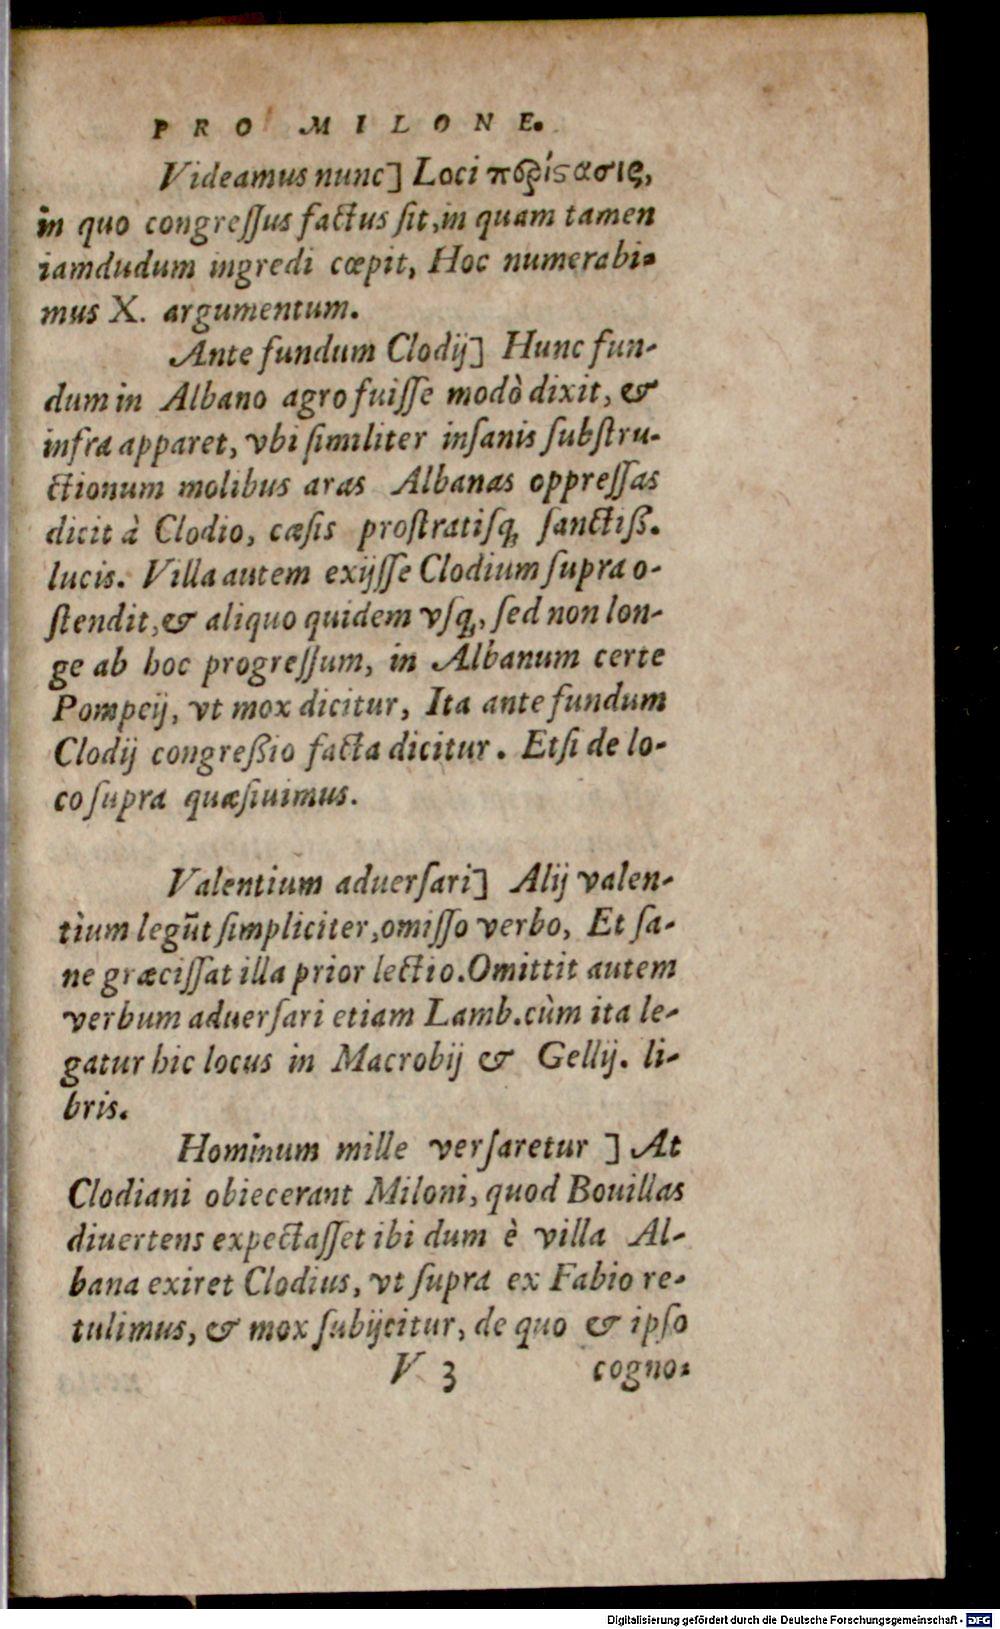 PRO MILONE.
Videamus nunc] Loci περίστασις,
in quo congreſſus factus ſit, in quam tamen
iamdudum ingredi cœpit, Hoc numerabi-
mus X. argumentum.
Ante fundum Clodij] Hunc fun-
dum in Albano agro fuiſſe modò dixit, &
infra apparet, vbi ſimiliter inſanis ſubſtru-
ctionum molibus aras Albanas oppreſſas
dicit à Clodio, cæſis proſtratiſq; ſanctiß.
lucis. Villa autem exijſſe Clodium ſupra o-
ſtendit, & aliquo quidem vſq;, ſed non lon-
ge ab hoc progreſſum, in Albanum certe
Pompeij, vt mox dicitur, Ita ante fundum
Clodij congreßio facta dicitur. Etſi de lo-
co ſupra quæſiuimus.
Valentium aduerſari] Alij valen-
tium legũt ſimpliciter, omiſſo verbo, Et ſa-
ne græciſſat illa prior lectio. Omittit autem
verbum aduerſari etiam Lamb. cùm ita le-
gatur hic locus in Macrobij & Gellij. li-
bris.
Hominum mille verſaretur] At
Clodiani obiecerant Miloni, quod Bouillas
diuertens expectaſſet ibi dum è villa Al-
bana exiret Clodius, vt ſupra ex Fabio re-
tulimus, & mox ſubijcitur, de quo & ipſo
V 3 cogno-
Digitalisierung gefördert durch die Deutsche Forschungsgemeinschaft - DFG